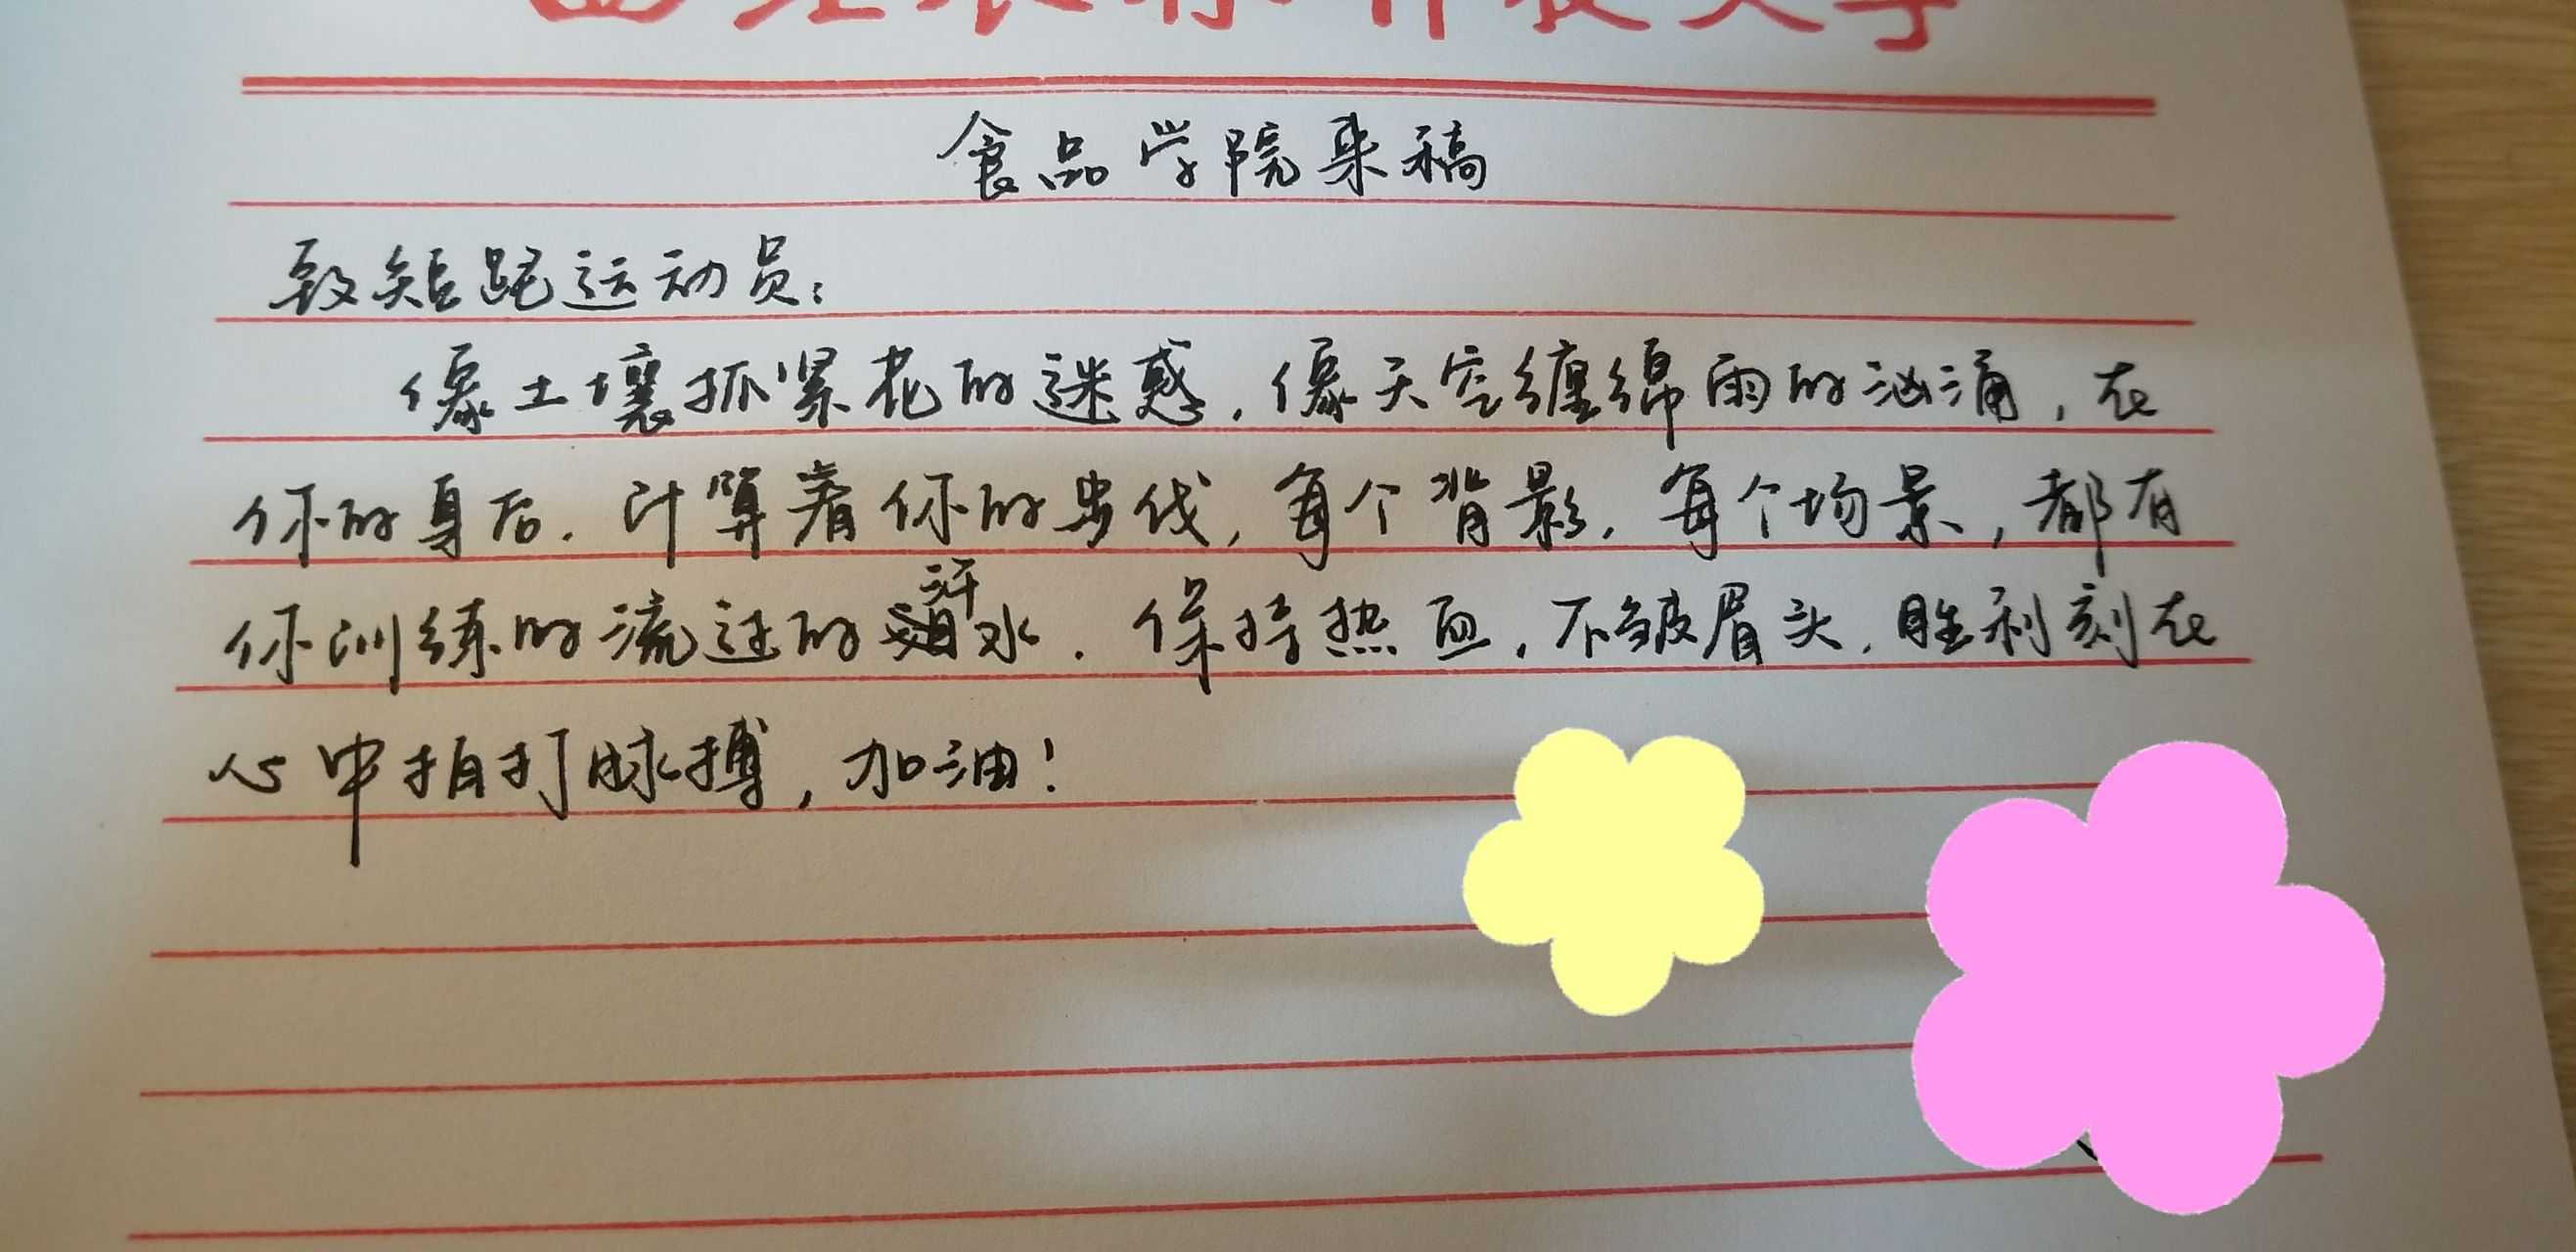 西北农林科技大学
食品学院来稿
致短跑运动员：
像土壤抓紧花的迷惑，像天空缠绵雨的汹涌，在
你的身后，计算着你的步伐，每个背影，每个场景，都有
你训练的流过的汗水．保持热血，不皱眉头，胜利刻在
心中拍打脉搏，加油！